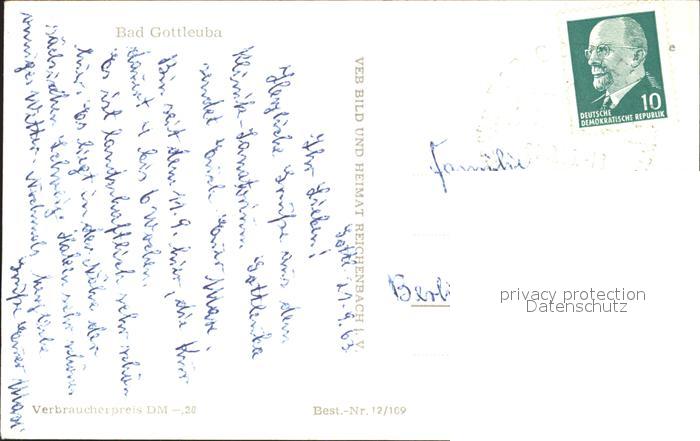 Bad Gottleuba
Gottl. 21.9.63
Ihr Lieben!
Herzliche Grüße aus dem
Klinik-Sanatorium Gottleuba
sendet Euch Euer Maxe.
Bin seit dem 11.9. hier, die Kur
dauert 4 bis 6 Wochen.
Es ist landschaftlich sehr schön
hier. Es liegt in der Nähe der
Sächsischen Schweiz. Haben sehr schönes
sonniges Wetter. Nochmals herzliche
Grüße Euer Maxe
VEB BILD UND HEIMAT REICHENBACH I. V.
Verbraucherpreis DM —,20
Best.-Nr. 12/169
10
DEUTSCHE
DEMOKRATISCHE REPUBLIK
Familie
Berli
privacy protection
Datenschutz